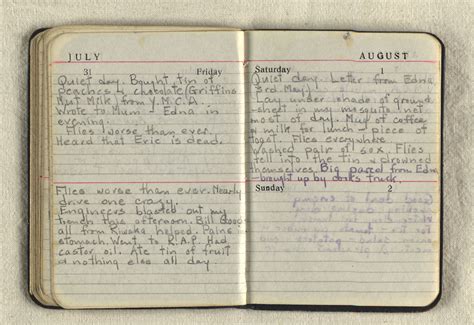 JULY
31 Friday
Quiet day. Bought tin of
peaches & chocolate (Griffins
Nut Milk) from Y.M.C.A.
Wrote to Mum - Edna in
evening.
Flies worse than ever.
Heard that Eric is dead.
Flies worse than ever. Nearly
drive one crazy.
Engineers blasted out my
trench this afternoon. Bill Good
all from helped. Pains
stomach. Went to R.A.P. Had
castor oil. Ate tin of fruit
& nothing else all day.
AUGUST
Saturday 1
Quiet day. Letter from Edna
(3rd May)
Lay under shade of ground-
sheet in my mosquito net
most of day. Mug of coffee
& milk for lunch - piece of
toast. Flies everywhere.
Washed pair of sox. Flies
fell into the tin & drowned
themselves. Big parcel from Edna
- brought up by truck.
Sunday 2